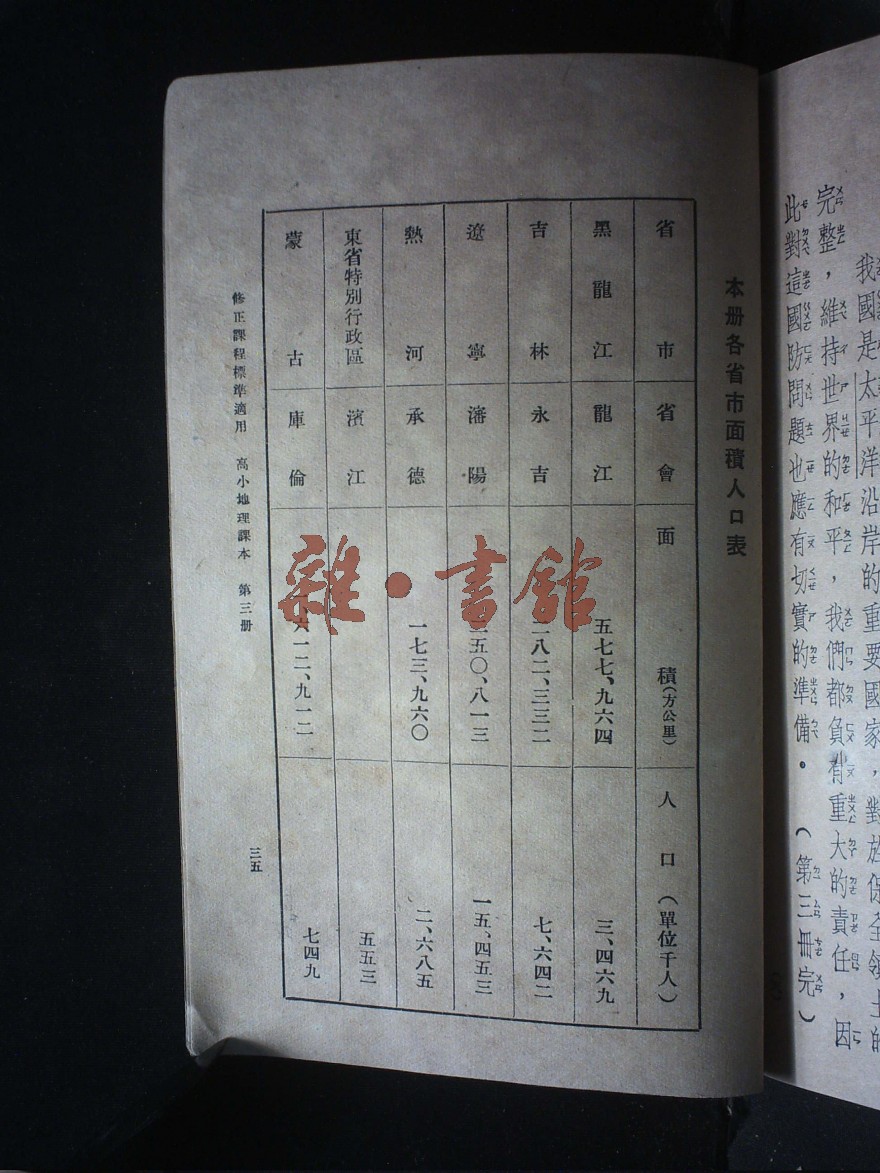 我國是太平洋沿岸的重要國家，對於保全領土的
完整，維持世界的和平，我們都負有重大的責任，因
此對這國防問題也應有切實的準備。（第三冊完）
本册各省市面積人口表
省市 省會 面積（方公里） 人口（單位千人）
黑龍江 龍江 五七七、九六四 三、四六九
吉林 永吉 二八二、三三二 七、六四二
遼寧 瀋陽 二五〇、八一三 一五、四五三
熱河 承德 一七三、九六〇 二、六八五
東省特別行政區 濱江 五五三
蒙古 庫倫 一、六一二、九一二 七四九
修正課程標準適用 高小地理課本 第三册
三五
雜·書館